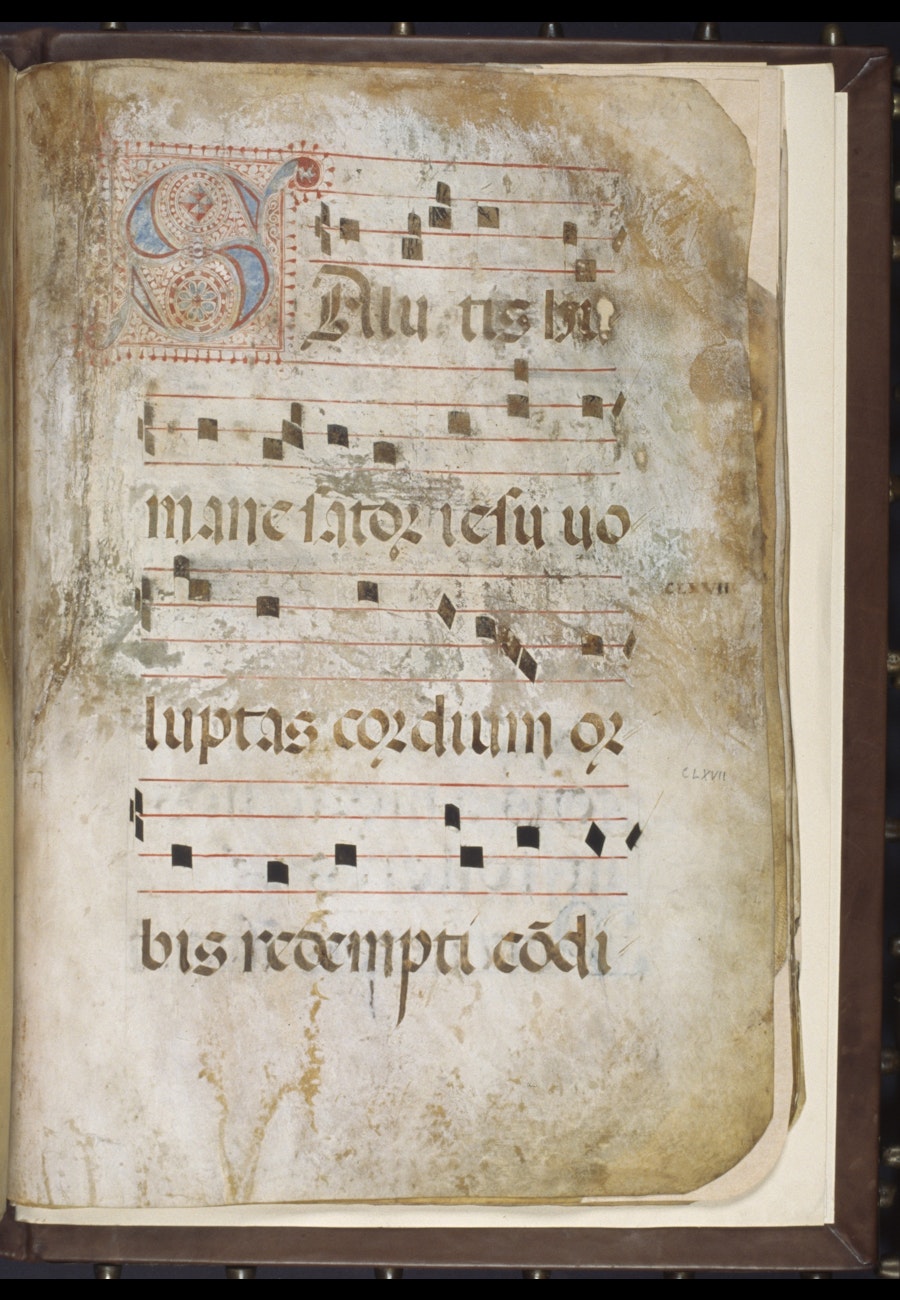 SAlu tis hu
mane sator iesu uo
CLXXVII
luptas cordium or
CLXVII
bis redempti cõdi